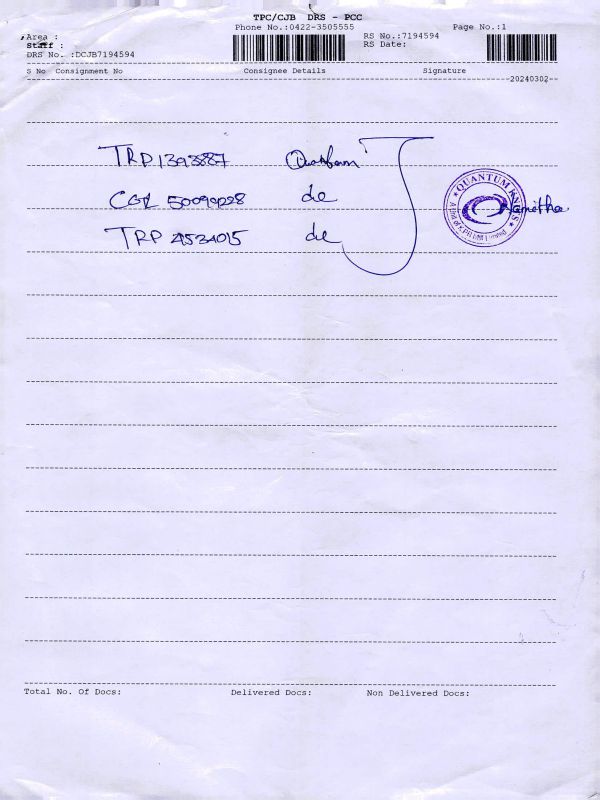 TPC/CJB DRS - PCC
Phone No.:0422-3505555 Page No.:1
Area :
Staff :
RS No.:7194594
RS Date:
DRS No. :DCJB7194594
S No Consignment No Consignee Details Signature
--20240302--
TRP
CGL do
TRP do
QUANTUM KNITS
Namitha
Total No. Of Docs: Delivered Docs: Non Delivered Docs: